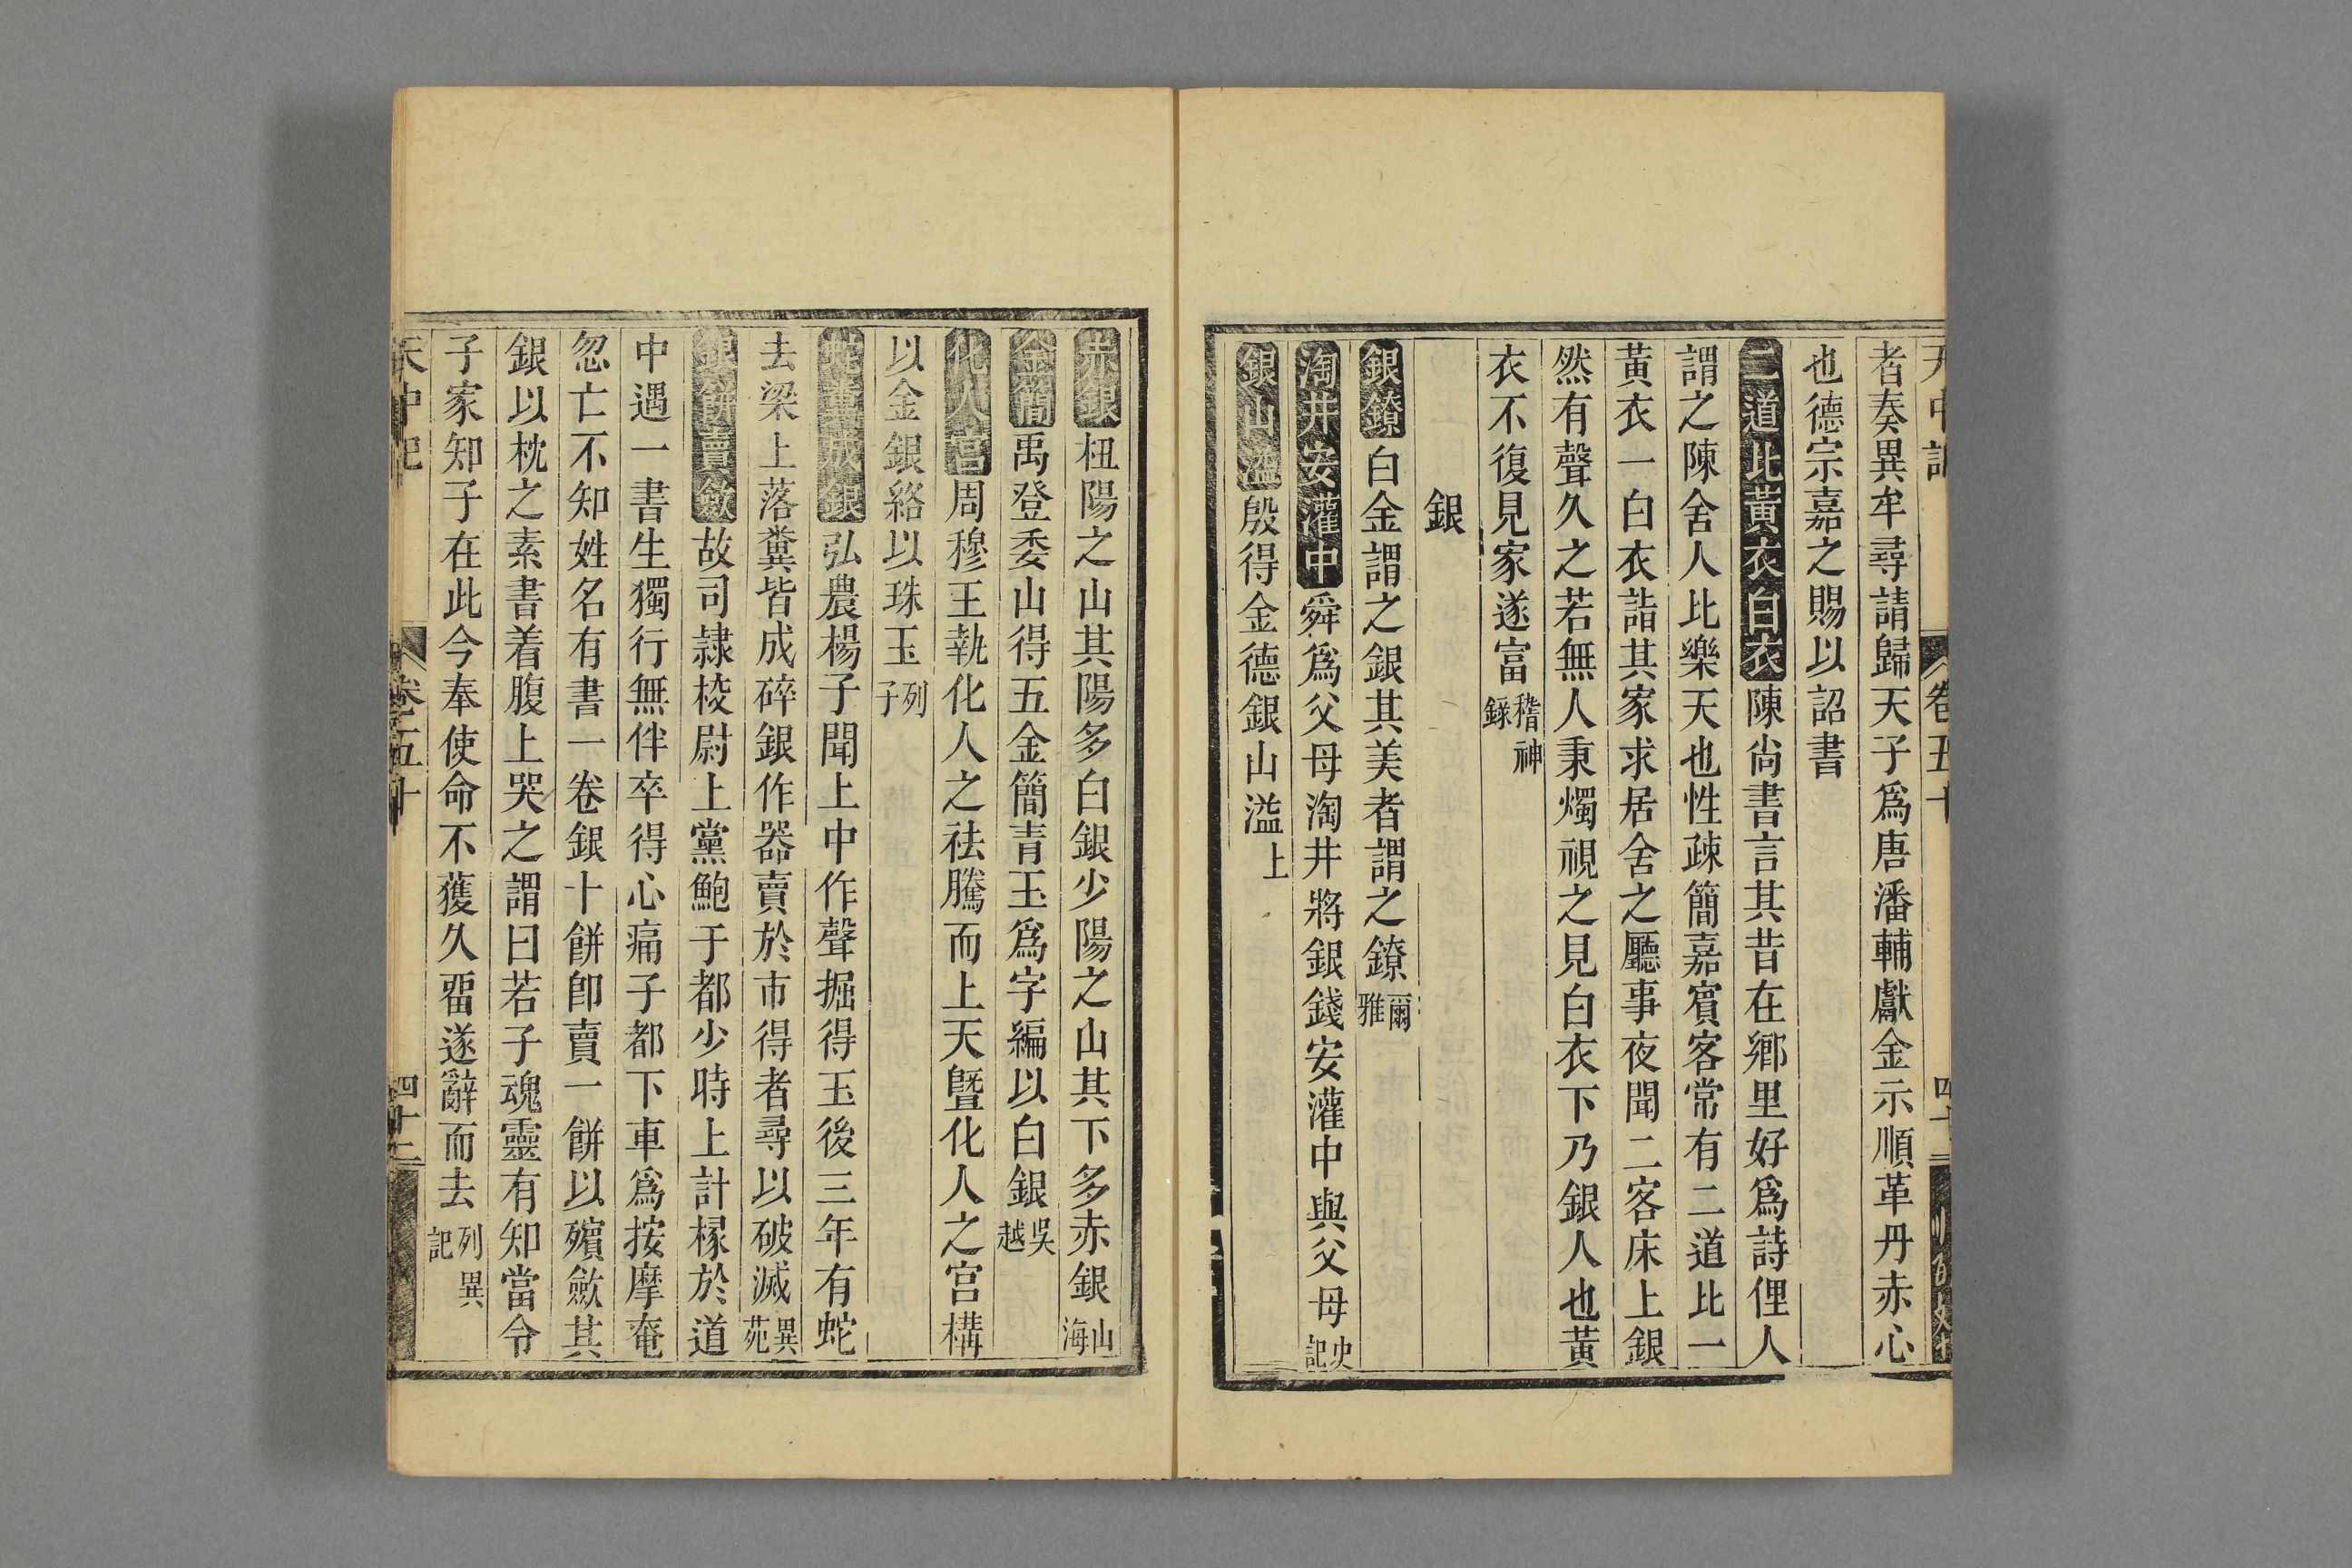 天中記 卷五十
者奏異牟尋請歸天子爲唐潘輔獻金示順革丹赤心
也德宗嘉之賜以詔書
二道比黃衣白衣陳尚書言其昔在鄉里好爲詩俚人
謂之陳舍人比樂天也性疎簡嘉賓客常有二道比一
黃衣一白衣詣其家求居舍之廳事夜聞二客床上銀
然有聲久之若無人秉燭視之見白衣下乃銀人也黃
衣不復見家遂富稽神錄
銀
銀鐐白金謂之銀其美者謂之鐐爾雅
淘井安灌中舜爲父母淘井將銀錢安灌中與父母史記
銀山溢殷得金德銀山溢上
赤銀杻陽之山其陽多白銀少陽之山其下多赤銀山海
金簡禹登委山得五金簡青玉爲字編以白銀吳越
化人宮周穆王執化人之祛騰而上天曁化人之宮構
以金銀絡以珠玉列子
蛇糞成銀弘農楊子聞上中作聲掘得玉後三年有蛇
去梁上落糞皆成碎銀作器賣於市得者尋以破滅異苑
銀餅賣斂故司隷校尉上黨鮑于都少時上計椽於道
中遇一書生獨行無伴卒得心痛子都下車爲按摩奄
忽亡不知姓名有書一卷銀十餅卽賣一餅以殯斂其
銀以枕之素書着腹上哭之謂曰若子魂靈有知當令
子家知子在此今奉使命不獲久畱遂辭而去列異記
天中記 卷五十 四十二